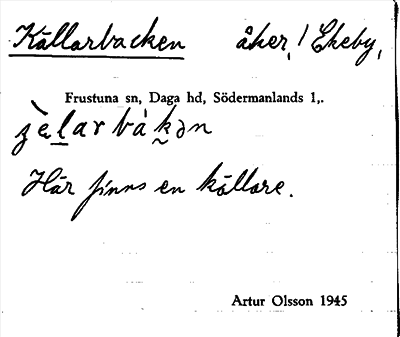 Källarbacken åker, / Ekeby,
Frustuna sn, Daga hd, Södermanlands l,.
Här finns en källare.
Artur Olsson 1945